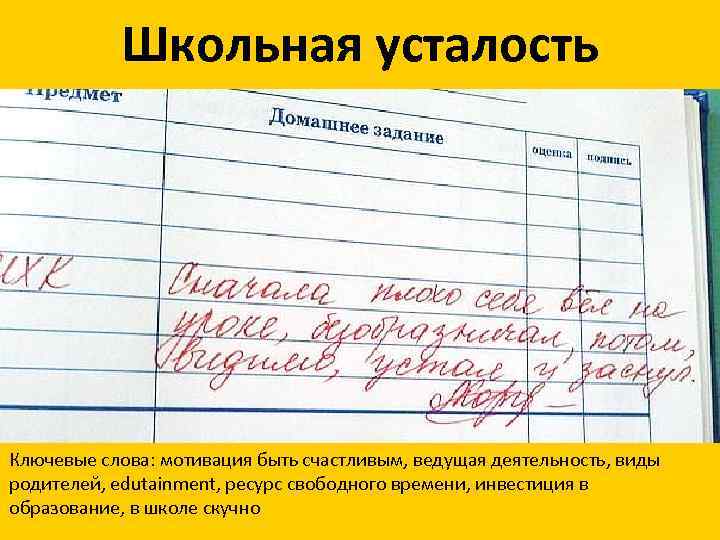 Школьная усталость
Предмет
Домашнее задание
оценка
подпись
МХК
Сначала плохо себя вёл на
уроке, безобразничал, потом,
видимо, устал и заснул.
Ключевые слова: мотивация быть счастливым, ведущая деятельность, виды
родителей, edutainment, ресурс свободного времени, инвестиция в
образование, в школе скучно